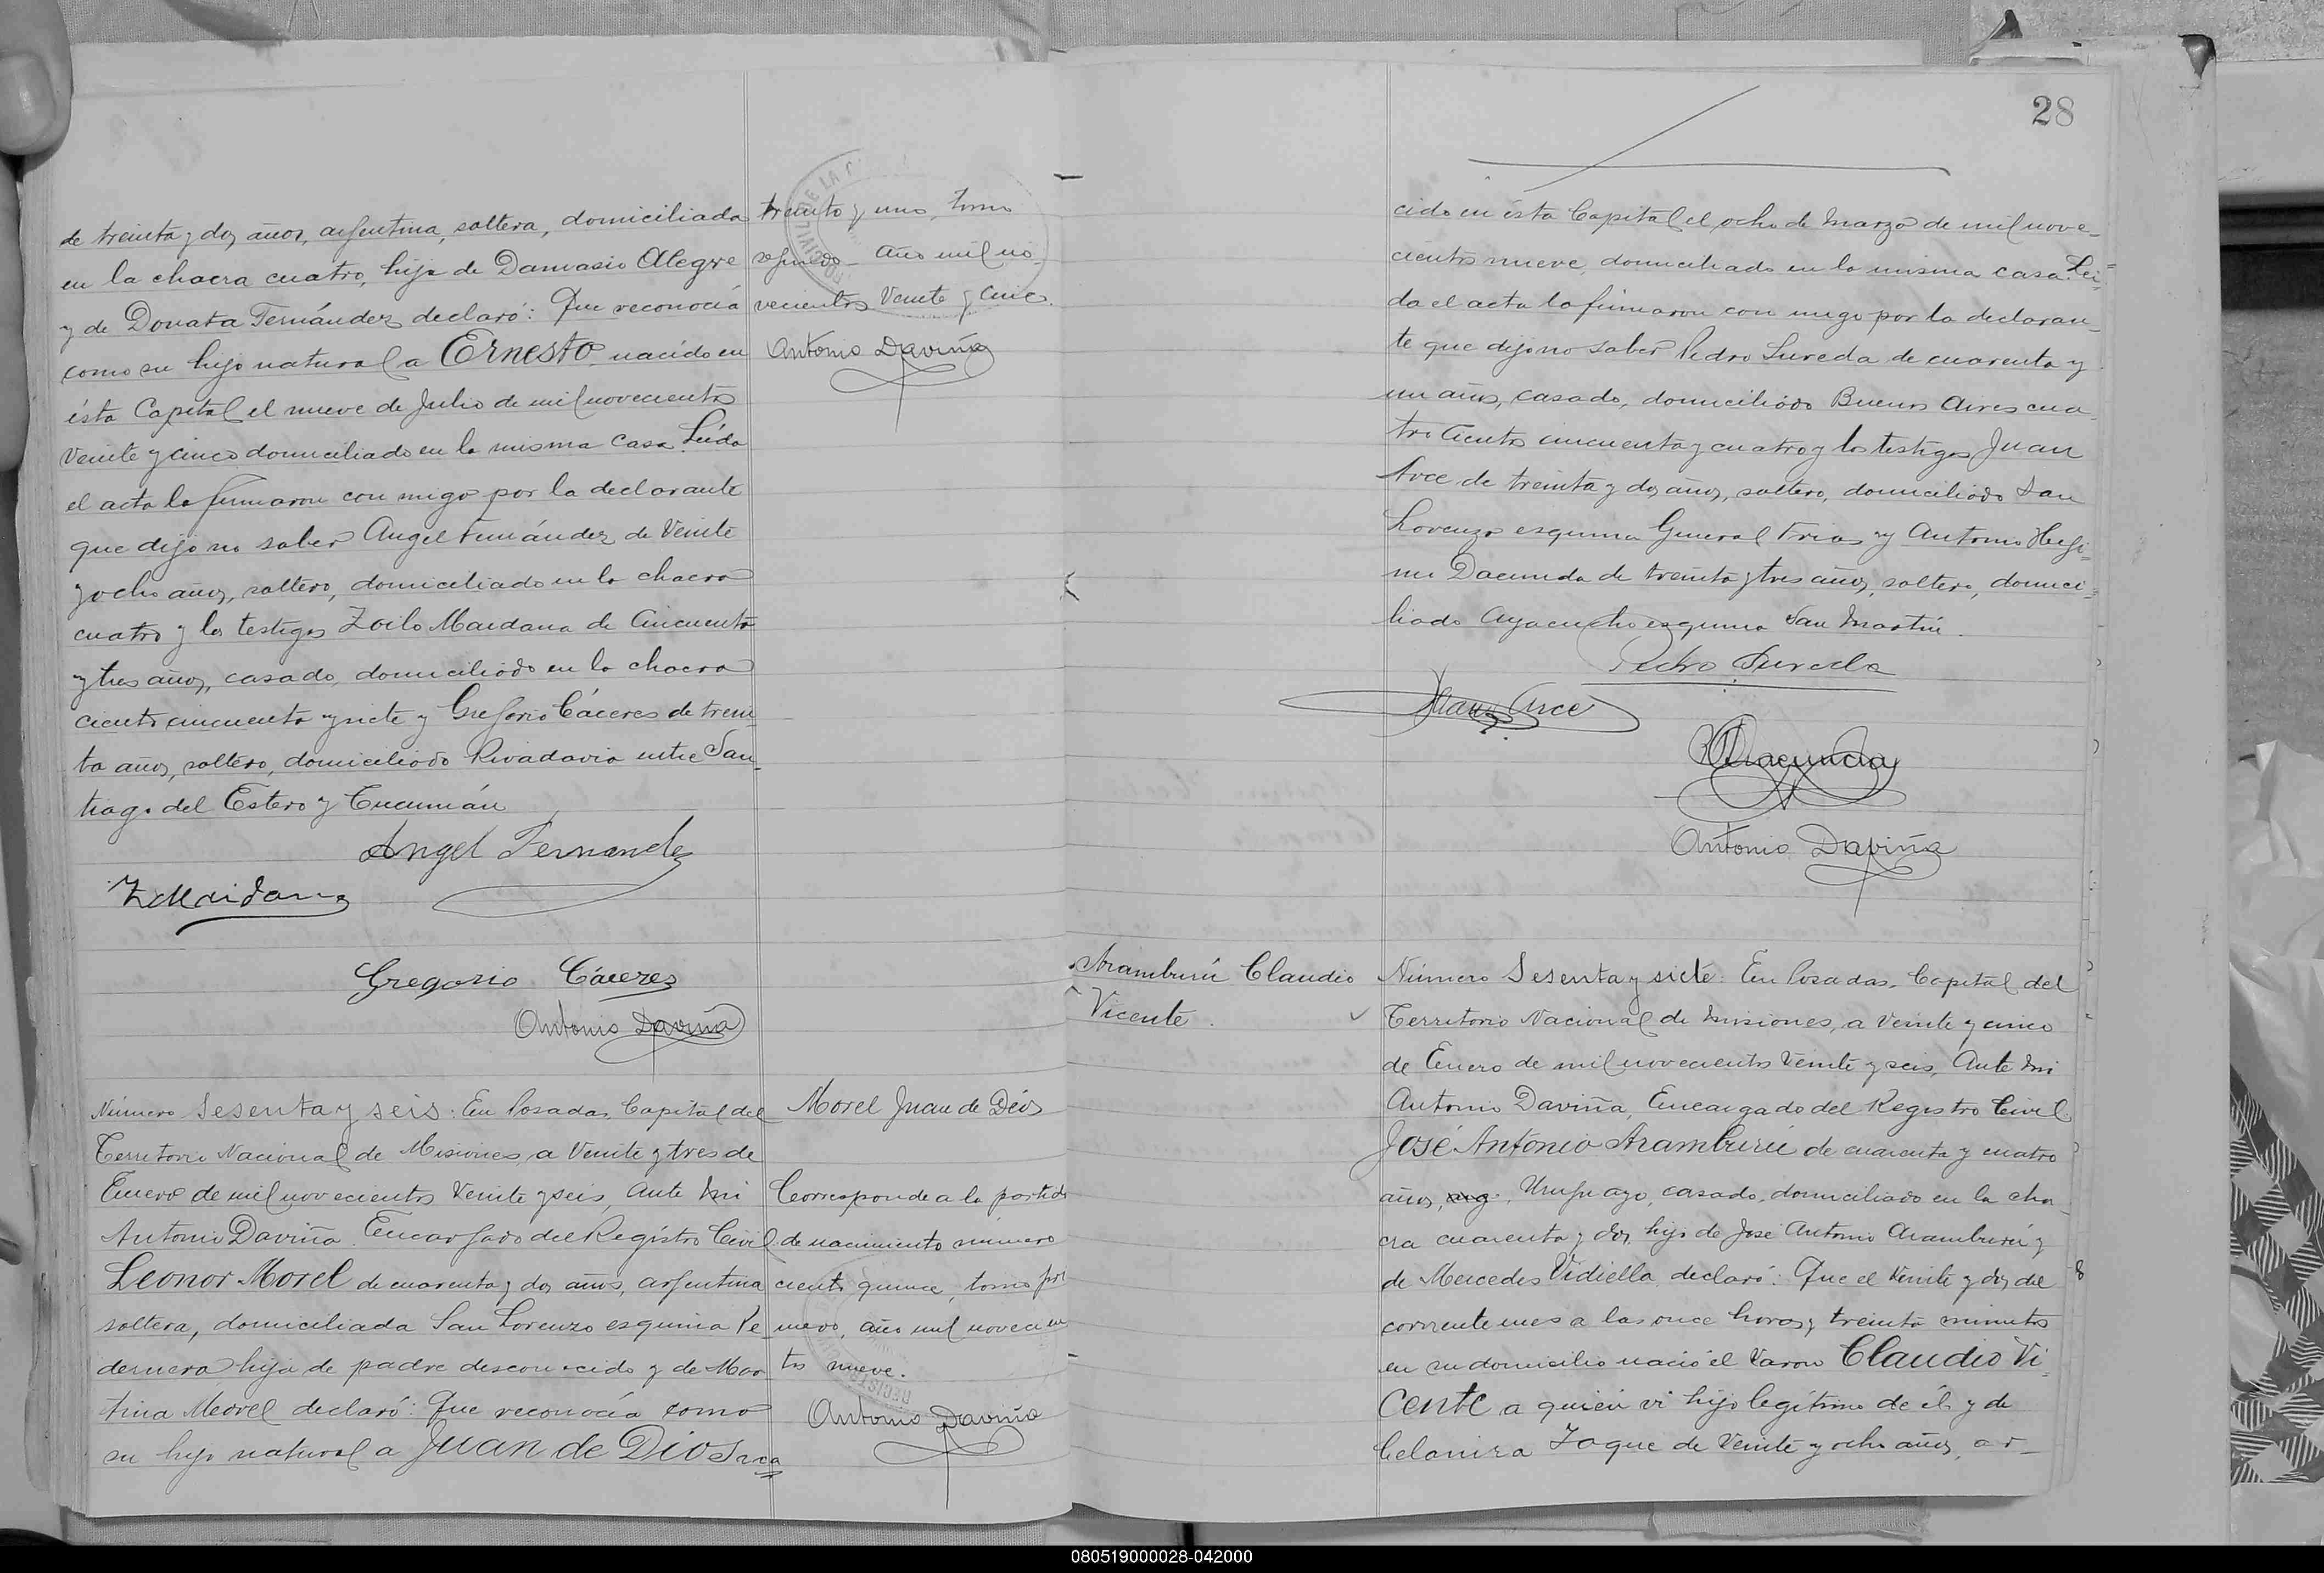 de treinta y dos años, argentina, soltera, domiciliada
en la chacra cuatro, hija de Damasio Alegre
y de Donata Fernández declaró: Que reconocía
como su hijo natural a Ernesto, nacido en
ésta Capital el nueve de Julio de mil novecientos
veinte y cinco domiciliado en la misma casa. Leída
el acta la firmaron con migo por la declarante
que dijo no saber Angel Fernández de veinte
y ocho años, soltero, domiciliado en la chacra
cuatro y los testigos Zoilo Maidana de cincuenta
y tres años, casado, domiciliado en la chacra
ciento cincuenta y siete y Gregorio Cáceres de trein-
ta años, soltero, domiciliado Rivadavia entre San-
tiago del Estero y Tucumán
Angel Fernandez
Z Maidana
Gregorio Cáceres
Antonio Daviña
treinta y uno, tomo
segundo - año mil no-
vecientos veinte y cinco.
Antonio Daviña
Número Sesenta y seis: En Posadas, Capital del
Territorio Nacional de Misiones, a veinte y tres de
Enero de mil novecientos veinte y seis, Ante mi
Antonio Daviña Encargado del Registro Civil
Leonor Morel de cuarenta y dos años, argentina
soltera, domiciliada San Lorenzo esquina Pe
dernera hija de padre desconocido y de Mar
tina Morel declaró: Que reconocía como
su hijo natural a Juan de Dios, na
Morel Juan de Diós
Corresponde a la partida
de nacimiento número
ciento quince, tomo pri
mero, año mil novecien
tos nueve.
Antonio Daviña
28
cido en ésta Capital el ocho de Marzo de mil nove-
cientos nueve, domiciliado en la misma casa. Lei-
da el acta la firmaron con migo por la declaran-
te que dijo no saber Pedro Sureda de cuarenta y
un años, casado, domiciliado Buenos Aires cua-
tro cientos cincuenta y cuatro y los testigos Juan
Arce de treinta y dos años, soltero, domiciliado San
Lorenzo esquina General Frias y Antonio Higi-
nio Dacunda de treinta y tres años, soltero, domici-
liado Ayacucho esquina San Martín.
Pedro Sureda
Juan Arce
Dacunda
Antonio Daviña
Aramburú Claudio
Vicente.
Número Sesenta y siete: En Posadas, Capital del
Territorio Nacional de Misiones, a veinte y cinco
de Enero de mil novecientos veinte y seis, Ante mi
Antonio Daviña, Encargado del Registro Civil
José Antonio Aramburú de cuarenta y cuatro
años, arg. Uruguayo, casado, domiciliado en la cha-
cra cuarenta y dos, hijo de José Antonio Aramburú y
de Mercedes Vidiella, declaró: Que el veinte y dos del
corriente mes a las once horas y treinta minutos
en su domicilio nació el varon Claudio Vi-
cente a quien vi hijo legítimo de él y de
Celanira Zaque de veinte y ocho años, ar-
080519000028-042000